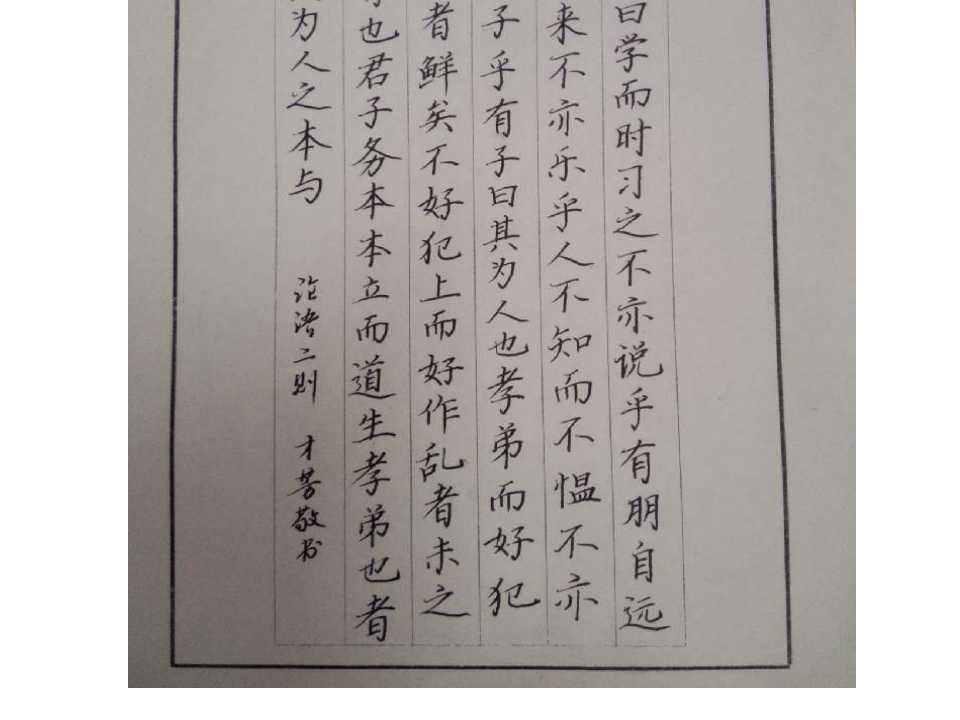 曰学而时习之不亦说乎有朋自远
来不亦乐乎人不知而不愠不亦
子乎有子曰其为人也孝弟而好犯
者鲜矣不好犯上而好作乱者未之
也君子务本本立而道生孝弟也者
为人之本与 论语二则 才芳敬书